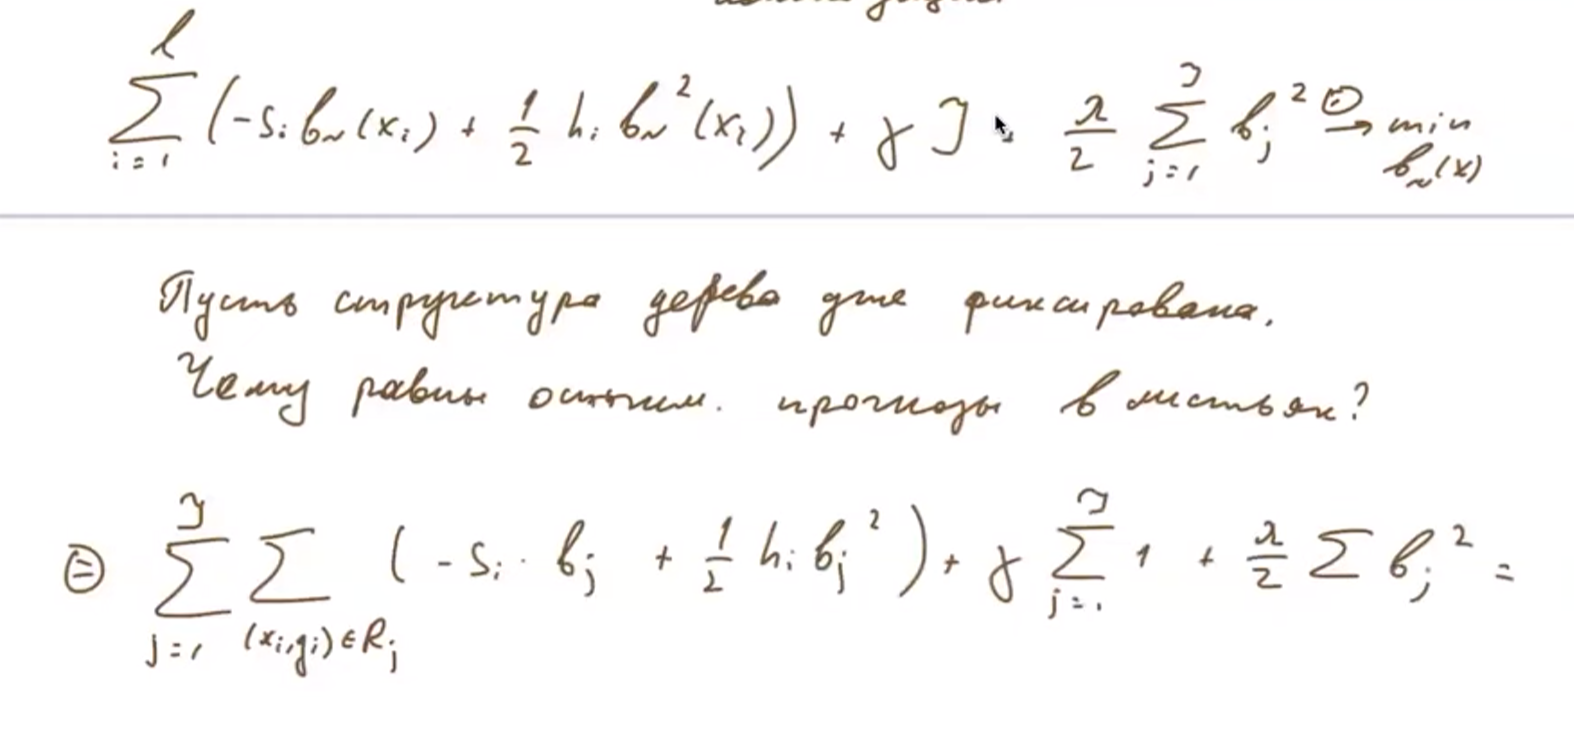 ∑_{i=1}^{ℓ} (-s_i b_N(x_i) + 1/2 h_i b_N^2(x_i)) + γJ + λ/2 ∑_{j=1}^{J} b_j^2 ⊜→ min_{b_N(x)}
Пусть структура дерева уже фиксирована.
Чему равны оптим. прогнозы в листьях?
⊜ ∑_{j=1}^{J} ∑_{(x_i,y_i)∈R_j} (-s_i · b_j + 1/2 h_i b_j^2) + γ ∑_{j=1}^{J} 1 + λ/2 ∑ b_j^2 =